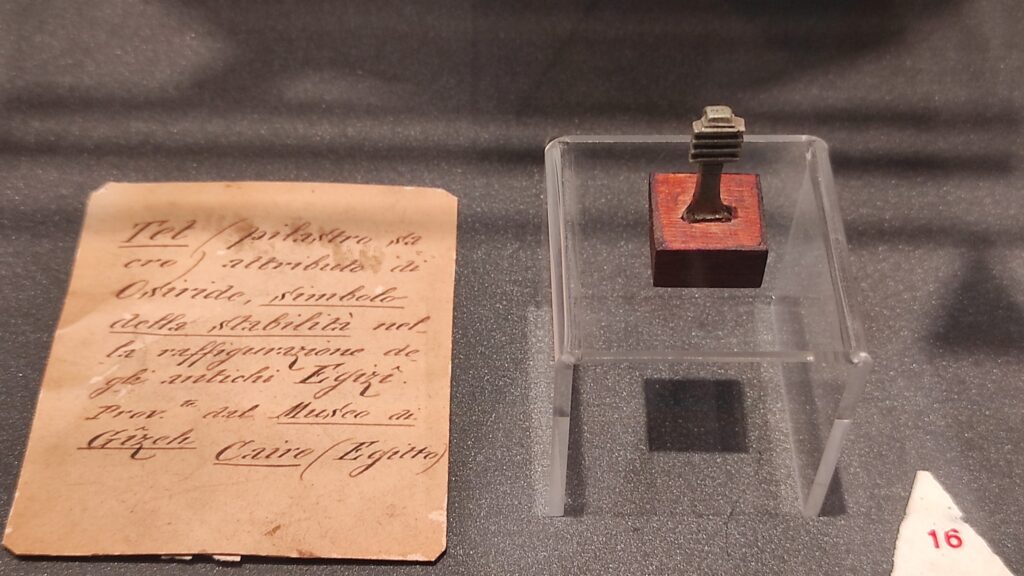 Tet (pilastro sa
cro) attributo di
Osiride, simbolo
della stabilità nel
la raffigurazione de
gli antichi Egizî.
Prov.te dal Museo di
Gîzeh Cairo (Egitto)
16